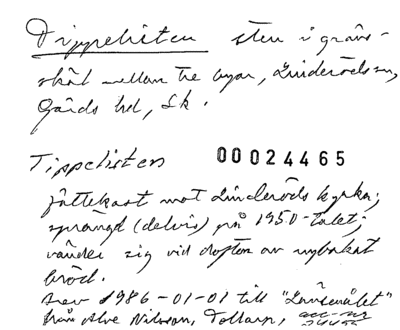 Tippelisten sten i gräns-
skäl mellan tre byar, Linderöds sn,
Gärds hd, Sk.
Tippelisten 00024465
jättekast mot Linderöds kyrka;
sprängd (delvis) på 1950-talet;
vänder sig vid doften av nybakat
bröd.
brev 1986-01-01 till "Länsmålet"
från Alve Nilsson, Tollarp, acc-nr